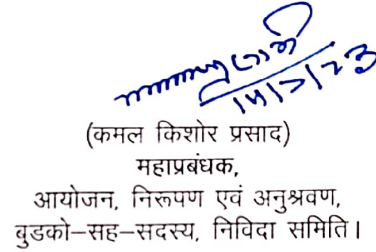 (कमल किशोर प्रसाद)
महाप्रबंधक,
आयोजन, निरूपण एवं अनुश्रवण,
बुडको–सह–सदस्य, निविदा समिति।